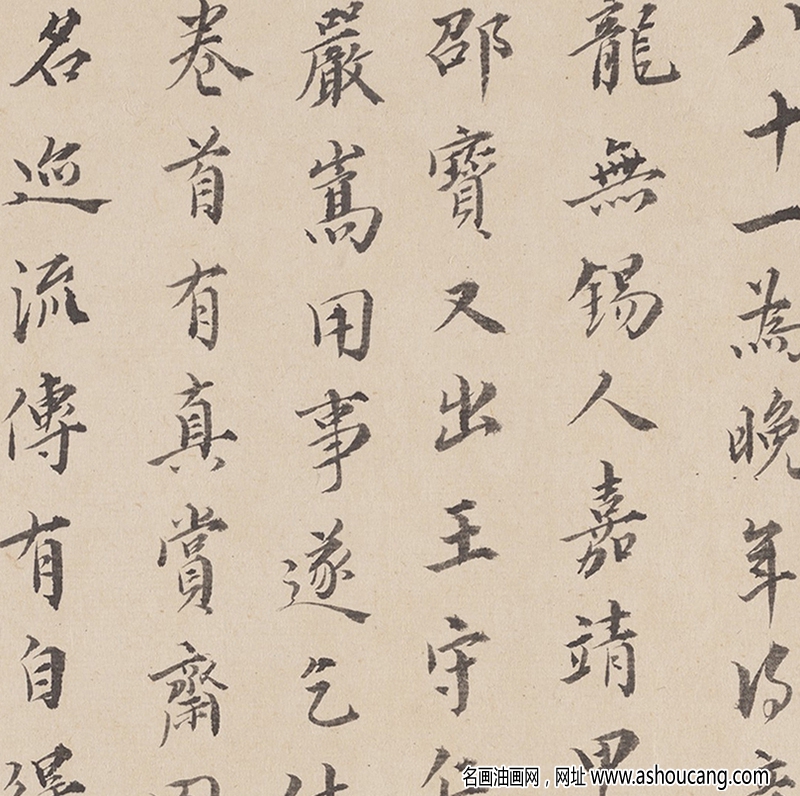 八十一為晚年得意
龍無錫人嘉靖甲
邵寶又出王守仁
嚴嵩用事遂乞休
卷首有真賞齋印
名迹流傳有自得
名画油画网，网址 www.ashoucang.com